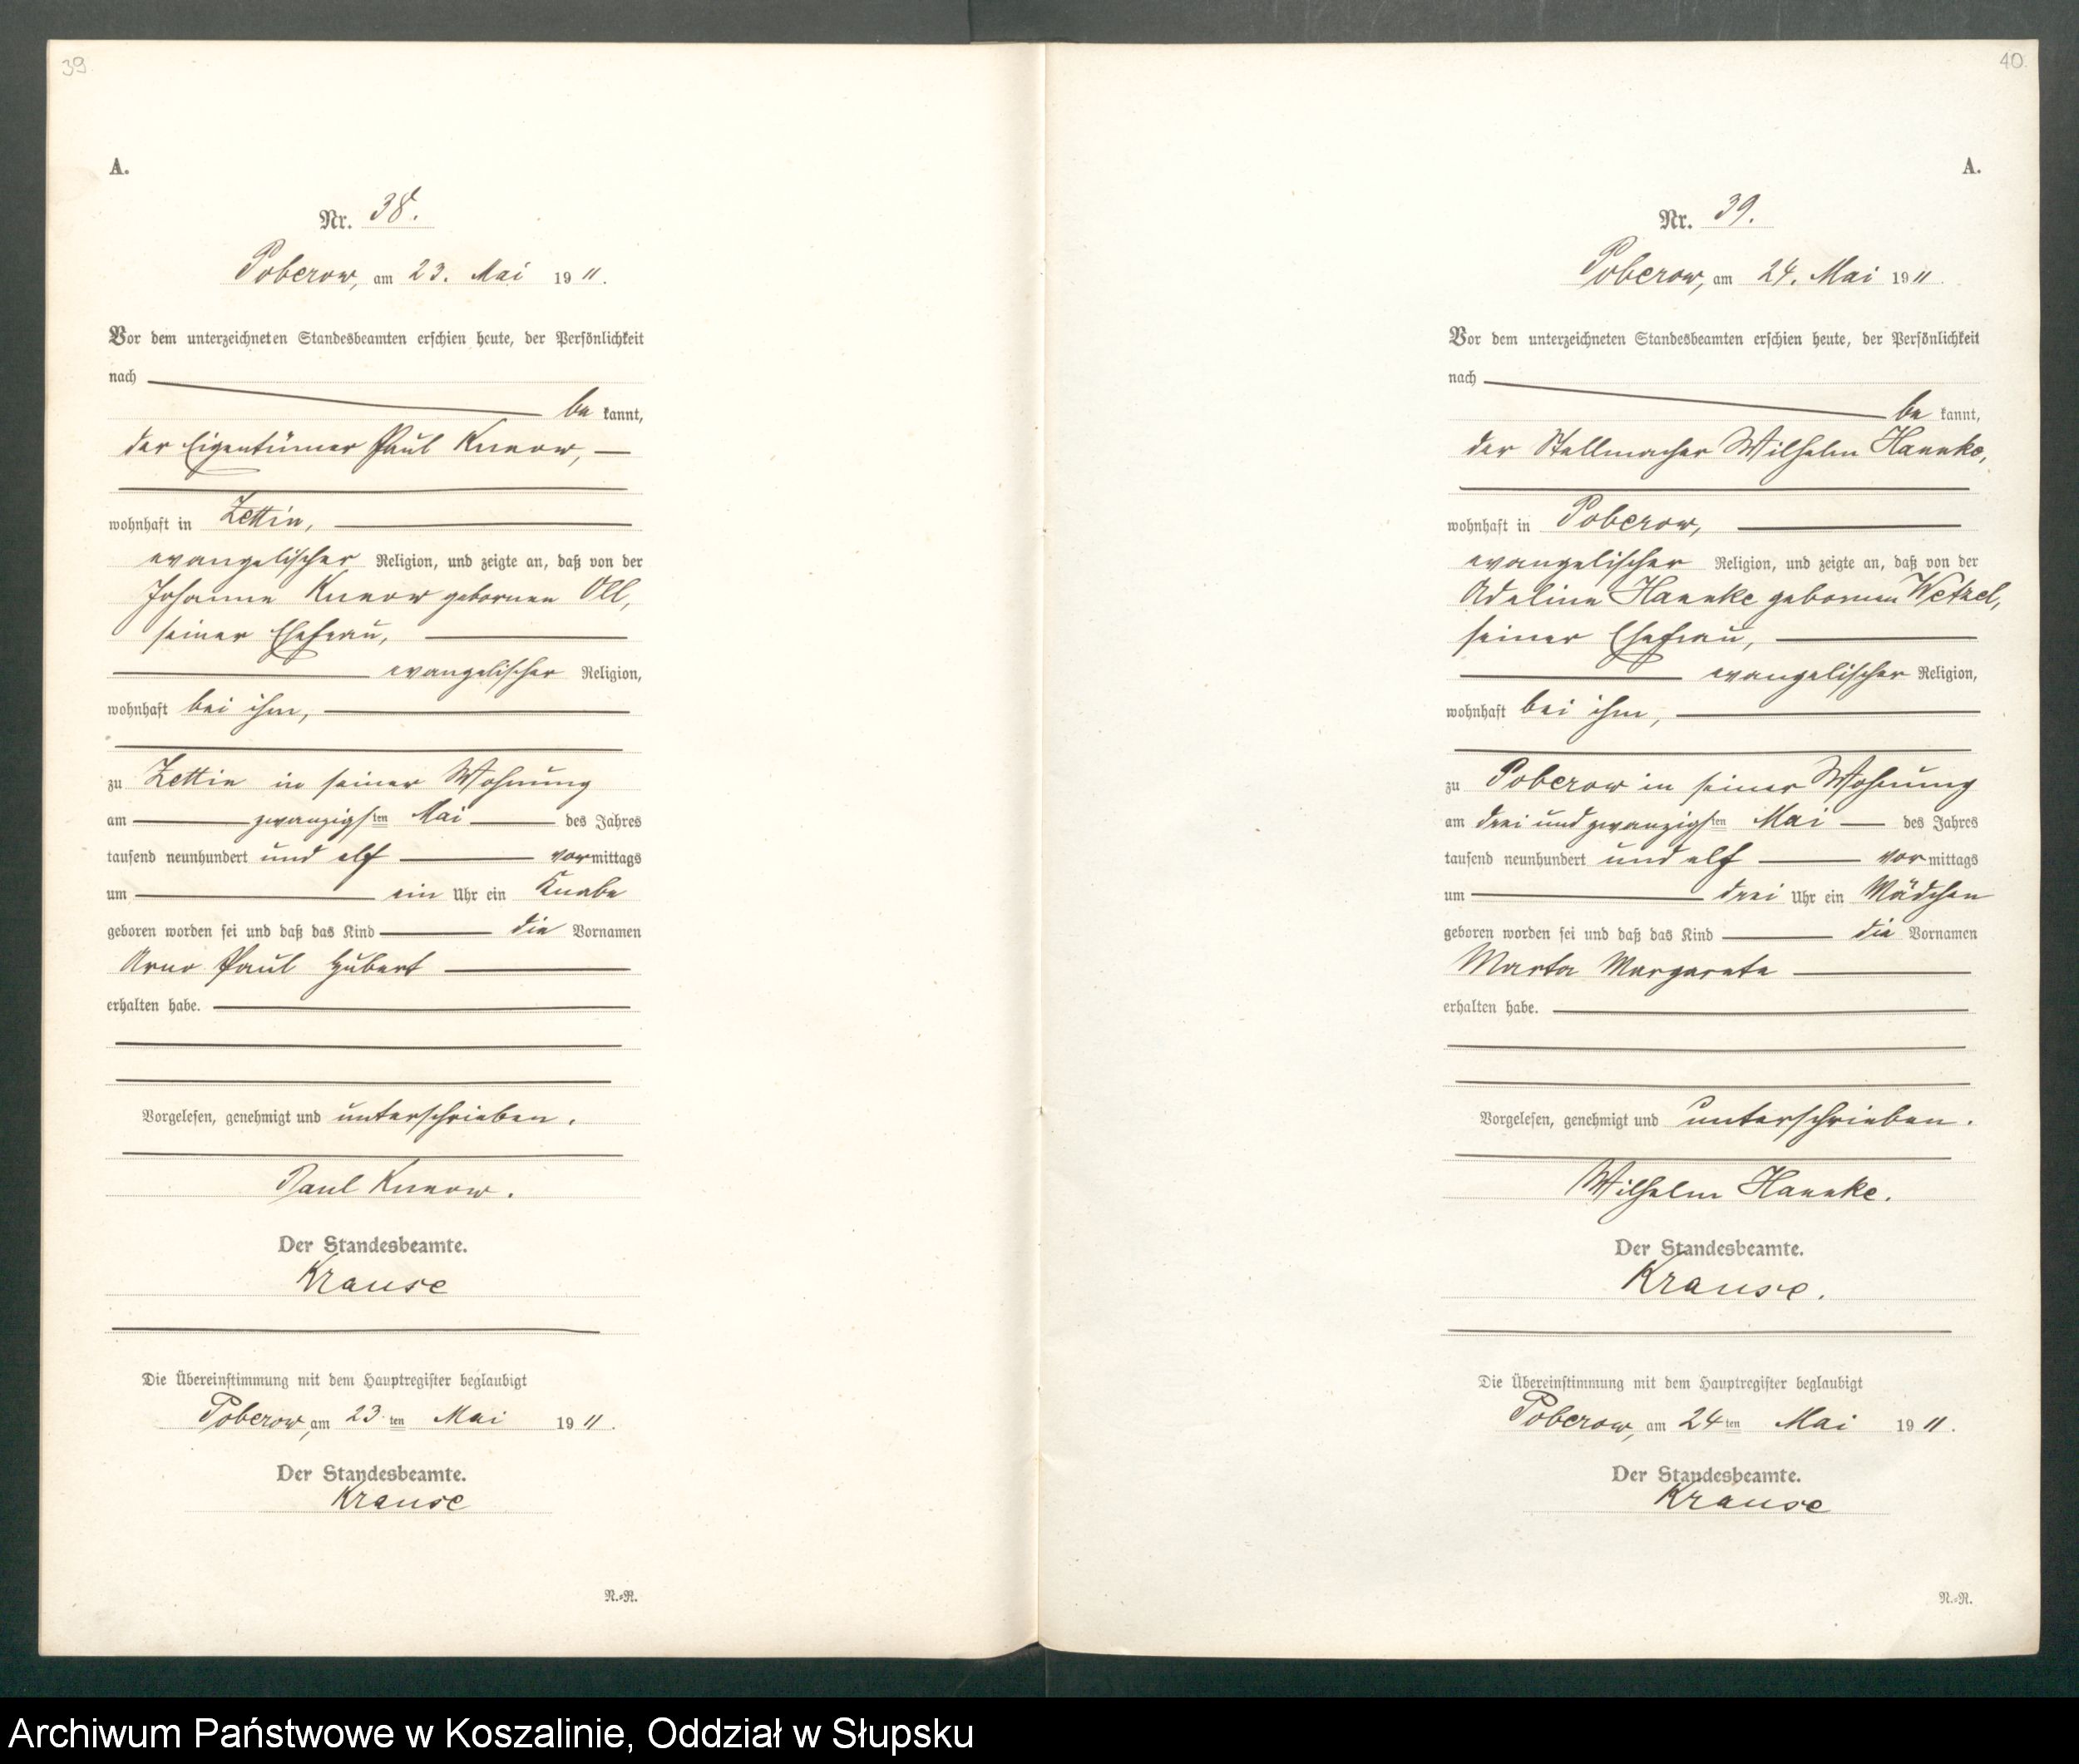 39.
A.
Nr. 38.
Poberow, am 23. Mai 1911.
Vor dem unterzeichneten Standesbeamten erschien heute, der Persönlichkeit
nach
be kannt,
der Eigentümer Paul Kunow,
wohnhaft in Zettin,
evangelischer Religion, und zeigte an, daß von der
Johanna Kunow gebornen Oll,
seiner Ehefrau,
evangelischer Religion,
wohnhaft bei ihm,
zu Zettin in seiner Wohnung
am zwanzigsten Mai des Jahres
tausend neunhundert und elf vormittags
um ein Uhr ein Knabe
geboren worden sei und daß das Kind die Vornamen
Arno Paul Hubert
erhalten habe.
Vorgelesen, genehmigt und unterschrieben.
Paul Kunow.
Der Standesbeamte.
Krause
Die Übereinstimmung mit dem Hauptregister beglaubigt
Poberow, am 23.ten Mai 1911.
Der Standesbeamte.
Krause
N.-N.
40.
A.
Nr. 39.
Poberow, am 24. Mai 1911.
Vor dem unterzeichneten Standesbeamten erschien heute, der Persönlichkeit
nach
be kannt,
der Stellmacher Wilhelm Hannke,
wohnhaft in Poberow,
evangelischer Religion, und zeigte an, daß von der
Adeline Hannke gebornen Wetzel,
seiner Ehefrau,
evangelischer Religion,
wohnhaft bei ihm,
zu Poberow in seiner Wohnung
am drei und zwanzigsten Mai des Jahres
tausend neunhundert und elf vormittags
um drei Uhr ein Mädchen
geboren worden sei und daß das Kind die Vornamen
Marta Margareta
erhalten habe.
Vorgelesen, genehmigt und unterschrieben.
Wilhelm Hannke.
Der Standesbeamte.
Krause.
Die Übereinstimmung mit dem Hauptregister beglaubigt
Poberow, am 24ten Mai 1911.
Der Standesbeamte.
Krause
N.-N.
Archiwum Państwowe w Koszalinie, Oddział w Słupsku